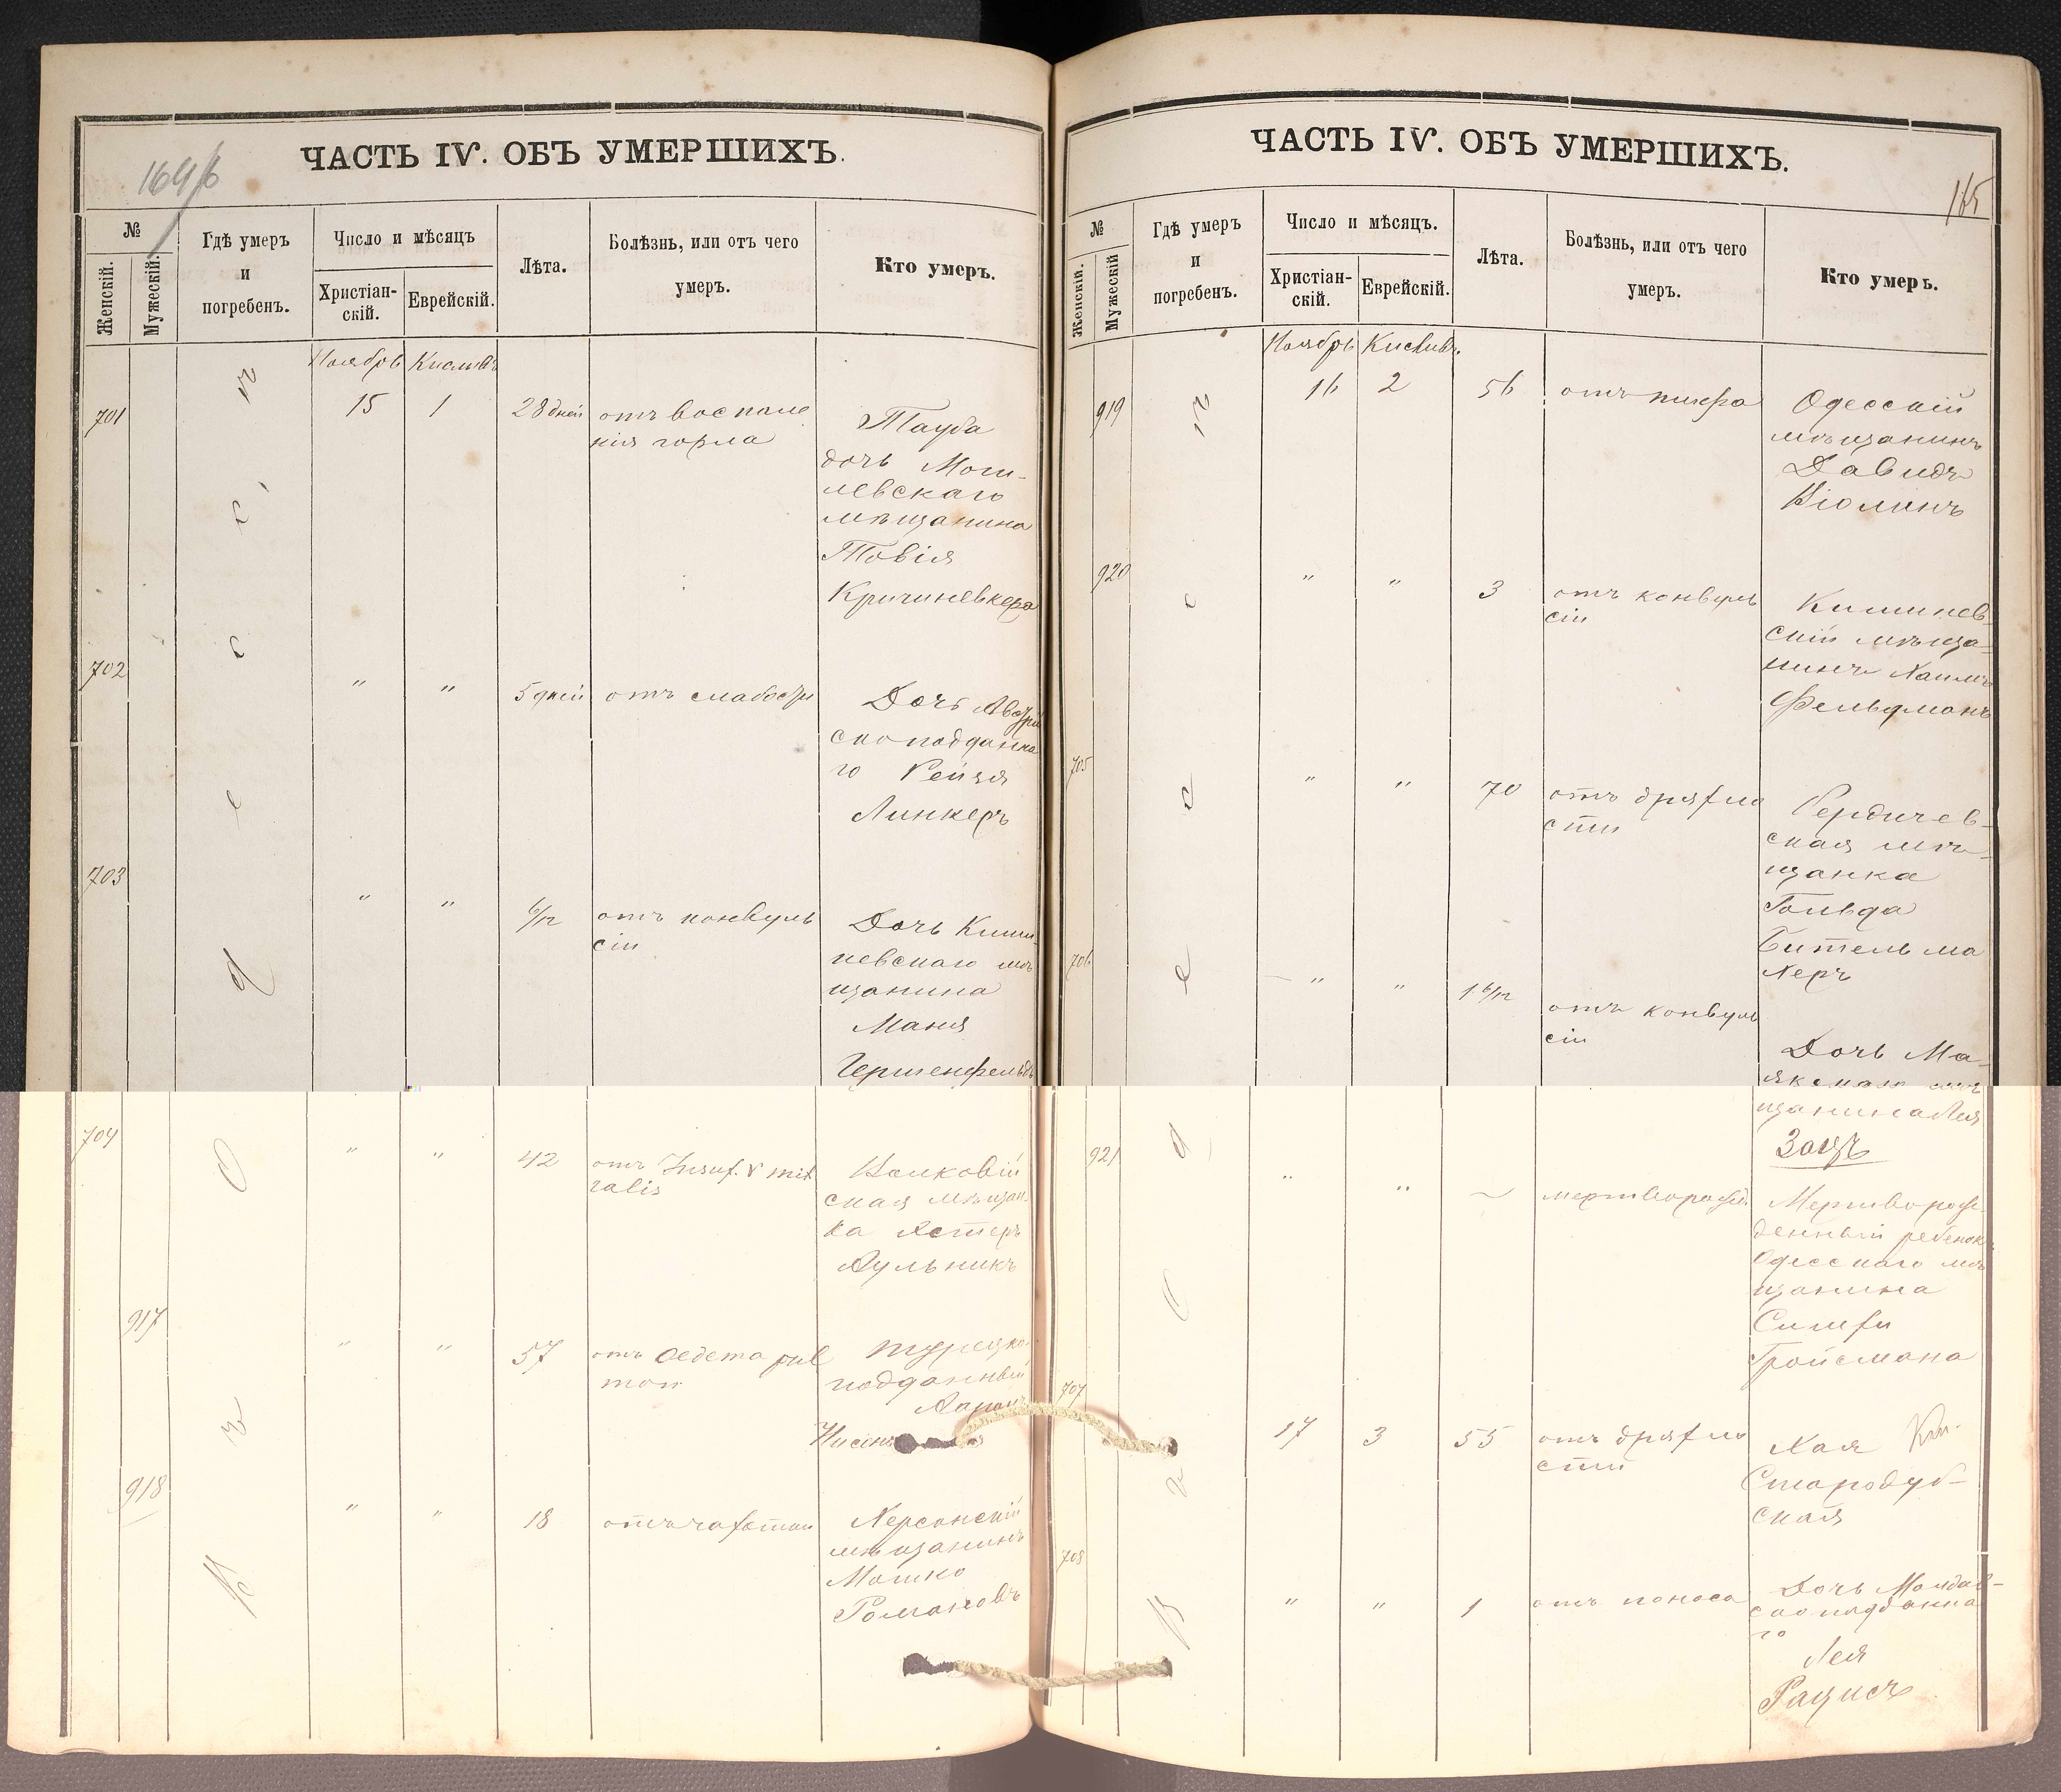 ЧАСТЬ IV. ОБЪ УМЕРШИХЪ.
164/б
№
Женскій.
Мужескій.
Гдѣ умеръ
и
погребенъ.
Число и мѣсяцъ
Христіан-
скій.
Еврейскій.
Лѣта.
Болѣзнь, или отъ чего
умеръ.
Кто умеръ.
Ноябрь Кислевъ
701 15 1 28 дней отъ воспале
нія горла
Тауба
дочь Моги-
левскаго
мѣщанина
Товія
Кричиневкера
702 " " 5 дней отъ слабости
Дочь Австрій
скоподданна
го Рейзя
Линкеръ
703 " " 6/12 отъ конвуль
сіи
Дочь Киши-
невскаго мѣ
щанина
Маня
Гершенфельдъ
704 " " 42 отъ Insuf. v mit
ralis
ская мѣщан-
ка Эстеръ
Аульникъ
917 " " 57 отъ Oedema pul
mon
Турецко-
подданный
Ааронъ
918 " " 18 отъ чахотки
Херсонскій
мѣщанинъ
Мошко
Романовъ
Въ Одессѣ
ЧАСТЬ IV. ОБЪ УМЕРШИХЪ.
165
№
Женскій.
Мужескій
Гдѣ умеръ
и
погребенъ.
Число и мѣсяцъ.
Христіан-
скій.
Еврейскій.
Лѣта.
Болѣзнь, или отъ чего
умеръ.
Кто умеръ.
Ноябрь Кислевъ
919 16 2 56 отъ тифа
Одесскій
мѣщанинъ
Давидъ
Кіолинъ
920 " " 3 отъ конвуль
сіи
Кишинев-
скій мѣща-
нинъ Хаимъ
Фельдманъ
705 " " 70 отъ дряхло
сти
Бердичев-
ская мѣ-
щанка
Гольда
Бительма
херъ
706 " " 1 6/12 отъ конвуль
сіи
Дочь Ма-
якскаго мѣ
щанина Лея
Заяцъ
921 " " ~ мертворожд.
Мертворож-
денный ребенок
Одесскаго мѣ
щанина
Симхи
Гройсмана
707 17 3 55 отъ дряхло
сти
Хая
Стародуб-
ская
708 " " 1 отъ поноса
Дочь Молдав-
скоподданна
го
Лея
Рацисъ
Въ Одессѣ